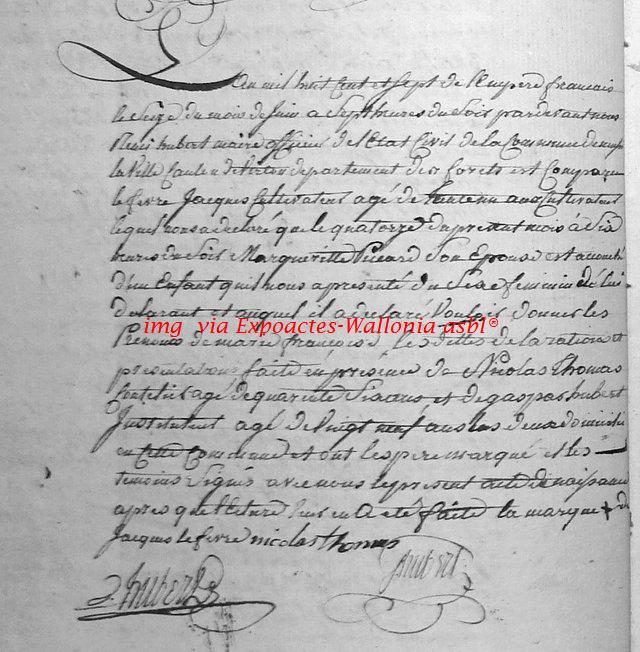 L'an mil huit Cent et Sept de l'Empire francais
le Seize du mois de Juin a Sept heures du Soir pardevant nous
hubert maire officier de l'Etat Civil de la Commune de
la Ville Canton de departement des forets est Comparu
lefevre Jacques Cultivateur agé de ans Cultivateur
lequel nous a declaré que le quatorze du present mois à Six
heures du Soir Margueritte Son Epouse est accouché
d'un Enfant qu'il nous a presenté du Sexe feminin de lui
declarant et auquel il a declaré Vouloir donner les
img via Expoactes-Wallonia asbl®
Prenoms de marie françoise les dittes declaration et
presentations faite en presence de Nicolas Thomas
agé de quarente Six ans et de gaspar hubert
Instituteur agé de Vingt neuf ans les deux domicilié
en Cette Commune et ont les pere marqué et les
temoins Signés avec nous le present acte de naissance
apres que lecture leur en a eté faite la marque + de
Jacques lefevre nicolas thomas
hubert
hubert